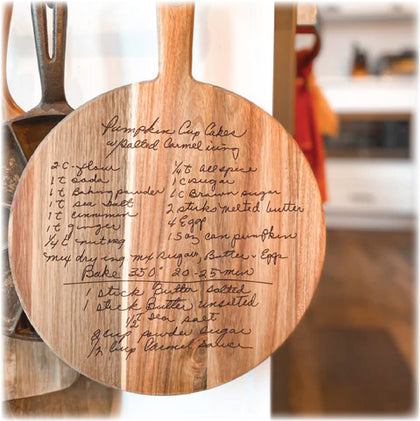 Pumpkin Cup Cakes
w/Salted Carmel icing
2 C-flour
1 t soda
1 t Baking powder
1 t sea salt
1 t cinnimin
1 t ginger
1/4 t nutmeg
1/4 t allspice
1 C sugar
1 C Brawn sugar
2 sticks melted butter
4 Eggs
15 oz can pumpkin
mix dry ing mix sugars, Butter + Eggs
Bake 350° 20-25 min
1 stick Butter salted
1 stick Butter unsalted
1/2 t sea salt
2 cup powder sugar
1/2 Cup Carmel sauce